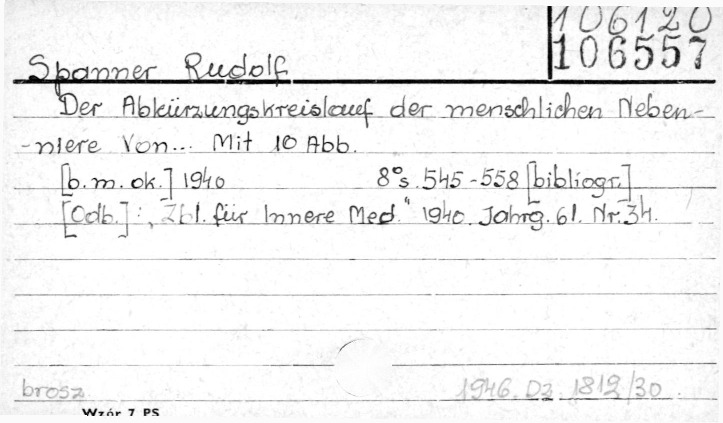 106120
106557
Spanner Rudolf
Der Abkürzungskreislauf der menschlichen Neben-
-niere Von... Mit 10 Abb.
[b.m.ok.] 1940 8°s. 545-558 [bibliogr.]
[Odb.]: „Zbl. für Innere Med." 1940. Jahrg. 61. Nr. 34.
brosz. 1946. Dz. 1812/30
Wzór 7 PS